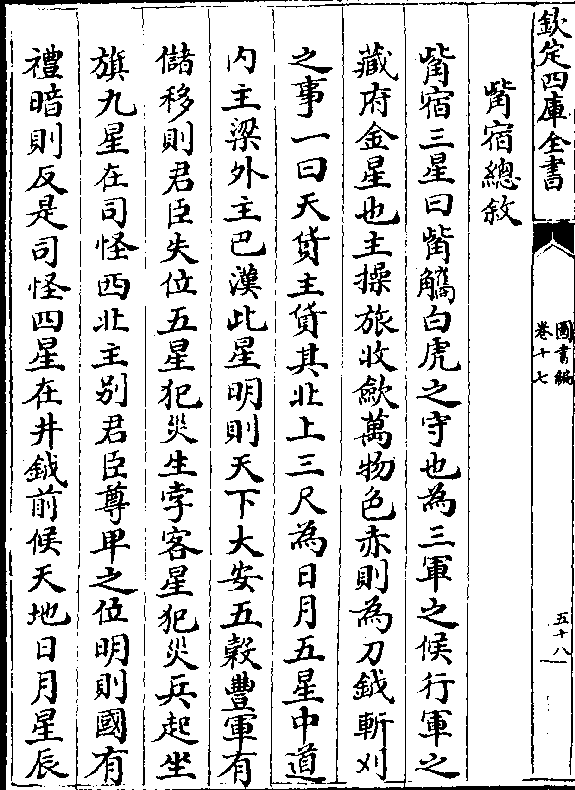 欽定四庫全書
圖書編
卷十七
五十八
觜宿總敘
觜宿三星曰觜觿白虎之守也為三軍之候行軍之
藏府金星也主操旅收斂萬物色赤則為刀鉞斬刈
之事一曰天貨主貨其北上三尺為日月五星中道
内主梁外主巴漢此星明則天下大安五穀豐軍有
儲移則君臣失位五星犯災生孛客星犯災兵起坐
旗九星在司怪西北主别君臣尊卑之位明則國有
禮暗則反是司怪四星在井鉞前候天地日月星辰